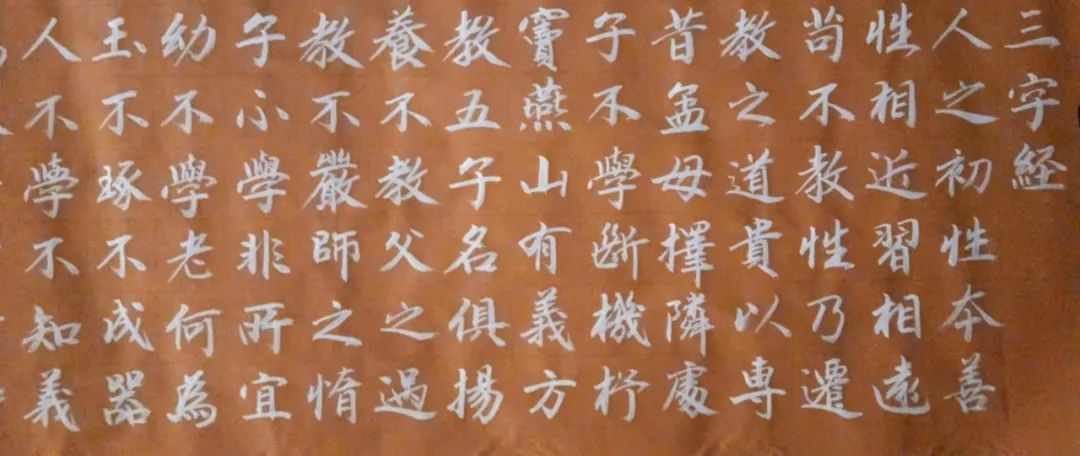 三字経
人之初性本善
性相近習相遠
尚不教性乃遷
教之道貴以専
昔孟母擇隣處
子不學斷機杼
竇燕山有義方
教五子名俱揚
養不教父之過
教不嚴師之惰
子不學非所宜
幼不學老何為
玉不琢不成器
人不學不知義